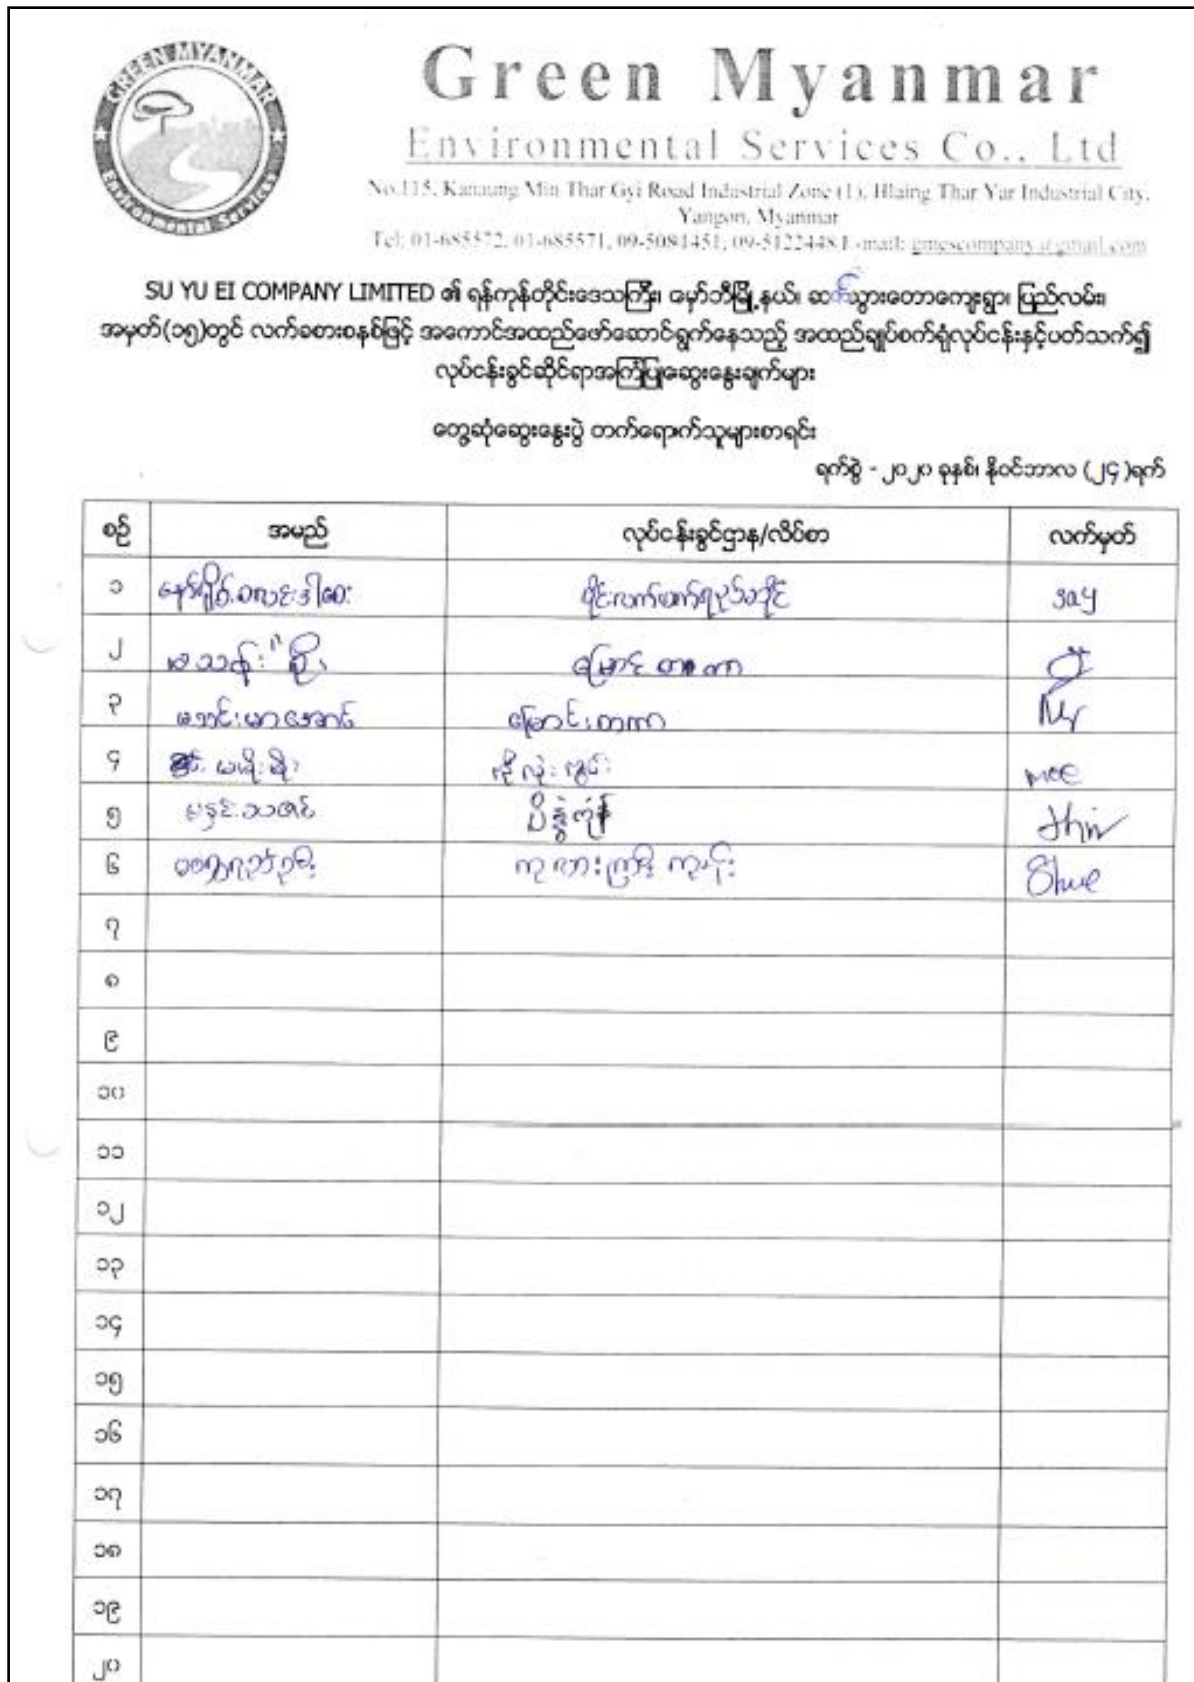 GREEN MYANMAR
Environmental Services
Green Myanmar
Environmental Services Co., Ltd
No.115, Kanaung Min Thar Gyi Road Industrial Zone (1), Hlaing Thar Yar Industrial City,
Yangon, Myanmar
Tel: 01-685572, 01-685571, 09-5081451, 09-5122448 E-mail: gmescompany@gmail.com
SU YU EI COMPANY LIMITED ၏ ရန်ကုန်တိုင်းဒေသကြီး၊ မှော်ဘီမြို့နယ်၊ ဆက်သွားတောကျေးရွာ၊ ပြည်လမ်း၊
အမှတ်(၁၅)တွင် လက်ခစားစနစ်ဖြင့် အကောင်အထည်ဖော်ဆောင်ရွက်နေသည့် အထည်ချုပ်စက်ရုံလုပ်ငန်းနှင့်ပတ်သက်၍
လုပ်ငန်းခွင်ဆိုင်ရာအကြံပြုဆွေးနွေးချက်များ
တွေ့ဆုံဆွေးနွေးပွဲ တက်ရောက်သူများစာရင်း
ရက်စွဲ - ၂၀၂၀ ခုနှစ်၊ နိုဝင်ဘာလ (၂၄)ရက်
စဉ် အမည် လုပ်ငန်းခွင်ဌာန/လိပ်စာ လက်မှတ်
၁
၂
၃ မြောင်းတကာ
၄ မမိုးမိုး
၅ မနှင်းသဇင် hin
၆ Shwe
၇
၈
၉
၁၀
၁၁
၁၂
၁၃
၁၄
၁၅
၁၆
၁၇
၁၈
၁၉
၂၀